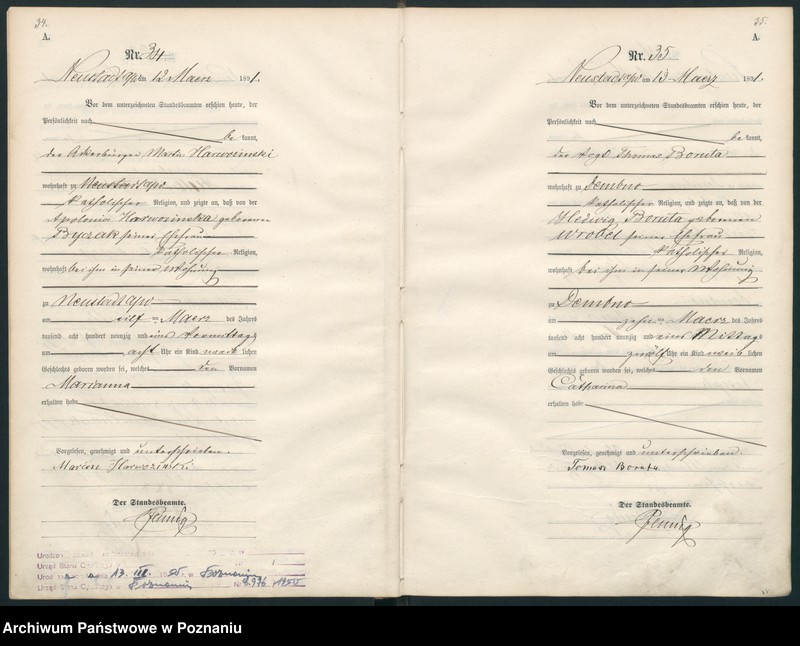 34.
A.
Nr. 34
Neustadt a/W am 12 Maerz 1891.
Vor dem unterzeichneten Standesbeamten erschien heute, der
Persönlichkeit nach
be kannt,
der Ackerbürger Martin
wohnhaft zu Neustadt a/W
katholischer Religion, und zeigte an, daß von der
Apolonia geborenen
seiner Ehefrau
katholischer Religion,
wohnhaft bei ihm in seiner Wohnung
zu Neustadt a/W
am eilf ten Maerz des Jahres
tausend acht hundert neunzig und eins Vormittags
um acht Uhr ein Kind weib lichen
Geschlechts geboren worden sei, welches den Vornamen
Marianna
erhalten habe
Vorgelesen, genehmigt und unterschrieben.
Der Standesbeamte.
Urząd Stanu
13. III. Poznaniu
Poznaniu Nr
35.
A.
Nr. 35
Neustadt a/W am 13 Maerz 1891.
Vor dem unterzeichneten Standesbeamten erschien heute, der
Persönlichkeit nach
be kannt,
der Vogt Thomas Boruta
wohnhaft zu Dembno
katholischer Religion, und zeigte an, daß von der
Hedwig Boruta geborenen
Wrobel seiner Ehefrau
katholischer Religion,
wohnhaft bei ihm in seiner Wohnung
zu Dembno
am zehn ten Maerz des Jahres
tausend acht hundert neunzig und eins Mittags
um zwölf Uhr ein Kind weib lichen
Geschlechts geboren worden sei, welches den Vornamen
Catharina
erhalten habe
Vorgelesen, genehmigt und unterschrieben.
Tomasz Boruta
Der Standesbeamte.
Archiwum Państwowe w Poznaniu